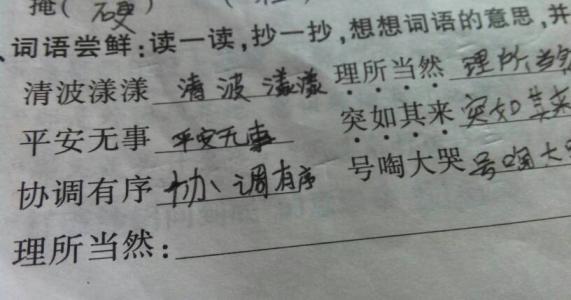 掩(硬)
词语尝鲜:读一读,抄一抄,想想词语的意思,并
清波漾漾 清波漾漾 理所当然 理所当然
平安无事 平安无事 突如其来 突如其来
协调有序 协调有序 号啕大哭 号啕大
理所当然: